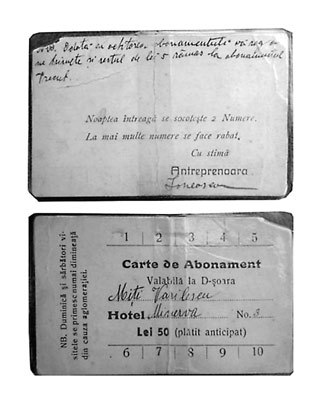 NB. Odată cu achitarea abonamentului vă rog a
ne trimete și restul de lei 5 rămas la abonamentul
trecut.
Noaptea întreagă se socotește 2 Numere.
La mai multe numere se face rabat.
Cu stimă
Antreprenoara
Ionescu
1 2 3 4 5
Carte de Abonament
Valabilă la D-șoara
Miți Vasilescu
Hotel Minerva No. 3
Lei 50 (plătit anticipat)
6 7 8 9 10
NB. Duminică și sărbători vi-
sitele se primesc numai dimineața
din cauza aglomerației.